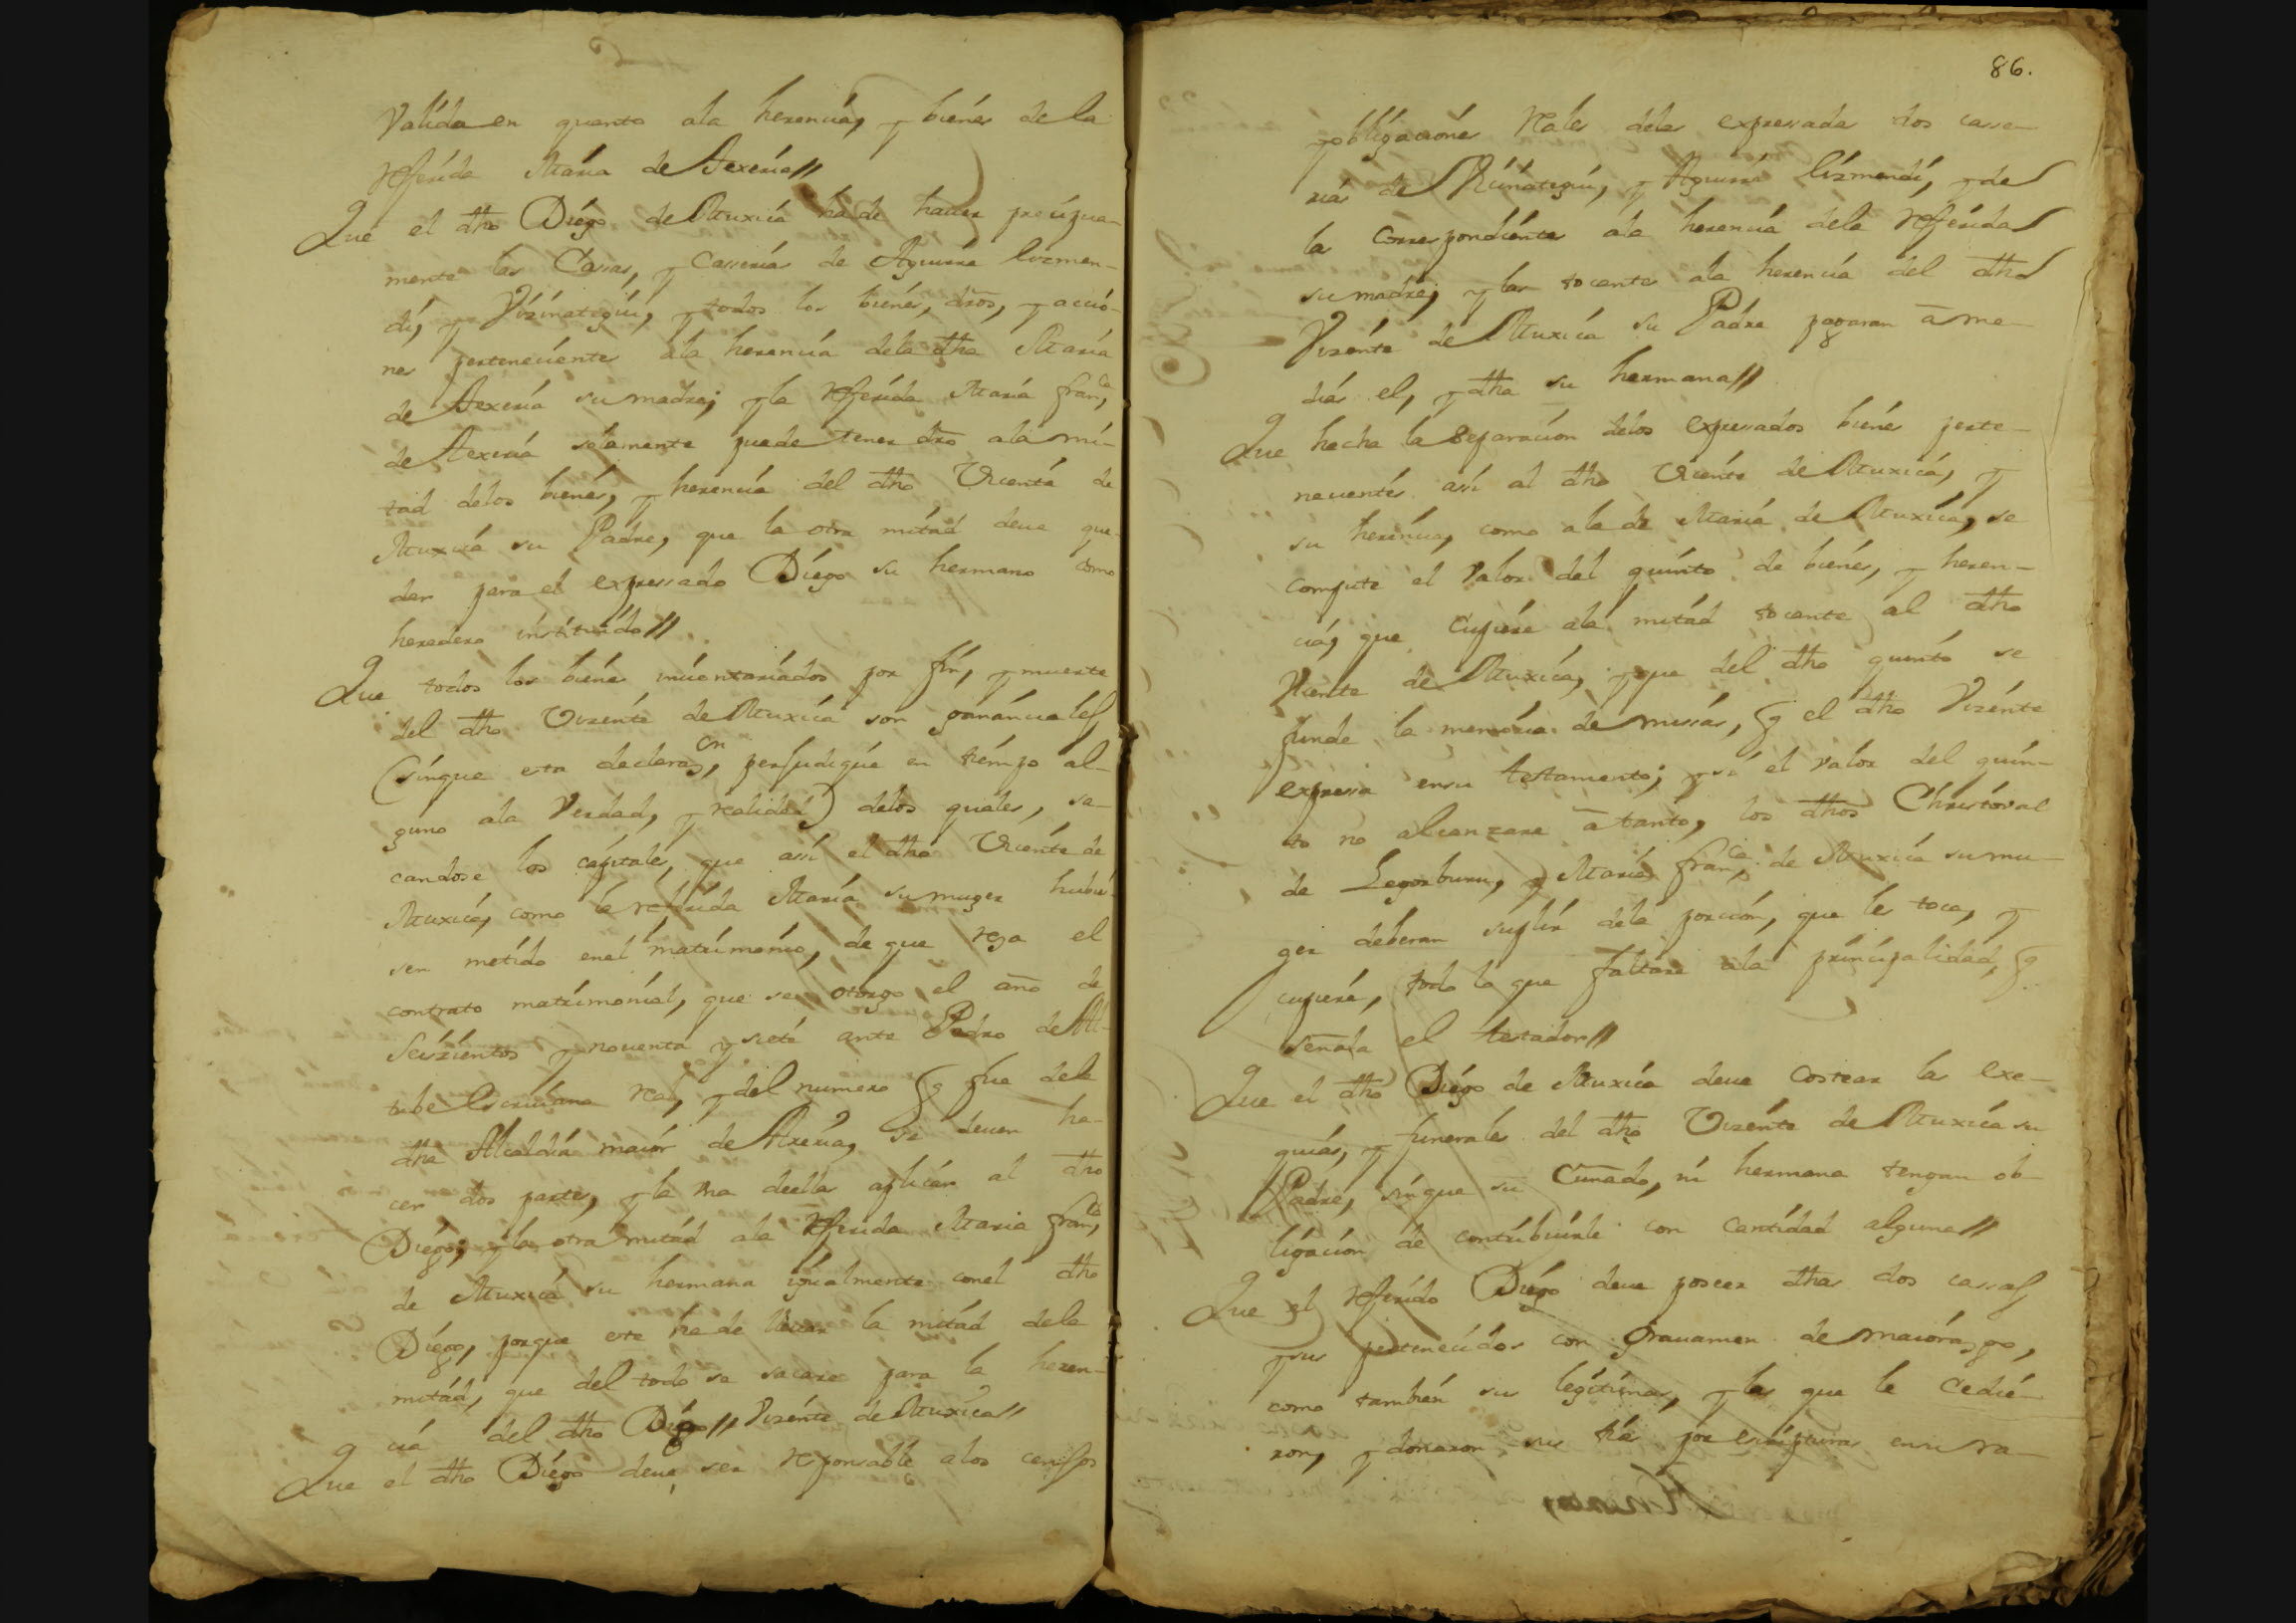 Valida en quanto ala herencia, y bienes de la
referida Maria de Arexeia//
Que el dho Diego de Muxica ha de hauer precipua-
mente las Casas, y Casserias de Aguirre lizmen-
di, y Vizinategui, y todos los bienes, dros, y accio-
nes pertenecientes ala herencia dela dha Maria
de su madre; y la referida Maria fran.ca
de solamente puede tener dro ala mi-
tad delos bienes, y herencia del dho Vicente de
Muxica su Padre, que la otra mitad deue que-
dar para el expressado Diego su hermano como
heredero instituido//
Que todos los bienes inuentariados por fin, y muerte
del dho Vizente de Muxica son gananciales
(sinque esta declaraz.on perjudique en tiempo al-
guno ala Verdad, y realidad) delos quales, sa-
candose los capitales, que assi el dho Vicente de
Muxica, como la referida Maria su muger hubie-
sen metido enel matrimonio, de que reza el
contrato matrimonial, que se otorgo el año de
Seiszientos y nouenta y siete ante Pedro de
Escriuano real, y del numero q fue dela
dha Alcaldia maior de se deuen ha-
cer dos partes, y la una deellas aplicar al dho
Diego; y la otra mitad ala referida Maria fran.ca
de Muxica su hermana igualmente conel dho
Diego, porque este ha de lleuar la mitad dela
mitad, que del todo se sacare para la heren-
cia del dho Diego// Vizente de Muxica//
Que el dho Diego deue ser responsable alos censsos
86.
y obligaciones reales delas expressadas dos casse-
rias de y Aguirre lizmendi, y de
la correspondientes ala herencia dela referida
su madre; y las tocantes ala herencia del dho
Vizente de Muxica su Padre pagaran à me-
dias el, y dha su hermana//
Que hecha la separacion delos expressados bienes perte-
necientes assi al dho Vicente de Muxica, y
su herencia, como ala de Maria de Muxica, se
compute el valor del quinto de bienes, y heren-
cia, que cupiere ala mitad tocante al dho
Vicente de Muxica, y que del dho quinto se
funde la memoria de missas, q el dho Vizente
expressa ensu testamento; y si el valor del quin-
to no alcanzare à tanto, los dhos Christoval
de Legorburu, y Maria fran.ca de Muxica su mu-
ger deberan suplir dela porcion, que les toca, y
cupiere, todo lo que faltare ala principalidad, q
señala el testador//
Que el dho Diego de Muxica deue costear las exe-
quias, y funerales del dho Vizente de Muxica su
Padre, sinque su Cuñado, ni hermana tengan ob-
ligacion de contribuirle con cantidad alguna//
Que el referido Diego deue poseer dhas dos cassas
y sus pertenecidos con grauamen de maiorazgo,
como tambien sus legitimas, y las que le cedie-
ron, y donaron sus tias por escripturas ensu ra-